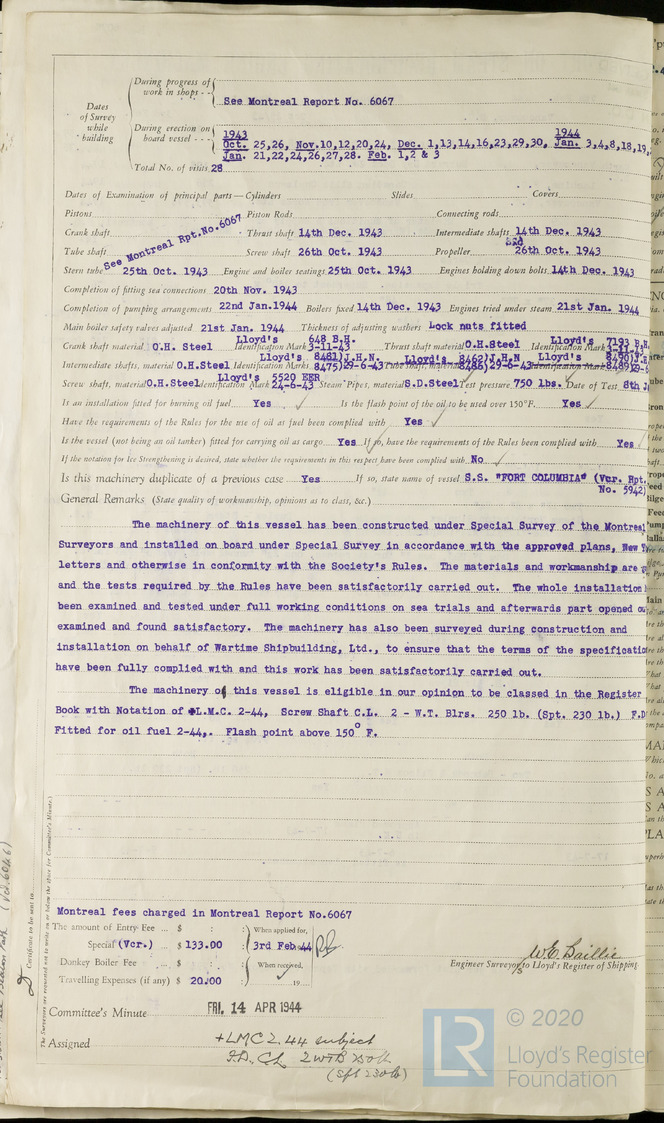 During progress of work in shops - -
See Montreal Report No. 6067
Dates of Survey while building
During erection on board vessel - - -
1943 1944
Oct. 25,26, Nov.10,12,20,24, Dec. 1,13,14,16,23,29,30, Jan. 3,4,8,18,19,
Jan. 21,22,24,26,27,28. Feb. 1,2 & 3
Total No. of visits 28
Dates of Examination of principal parts—Cylinders Slides Covers
Pistons Piston Rods Connecting rods
Crank shaft See Montreal Rpt.No.6067 Thrust shaft 14th Dec. 1943 Intermediate shafts 14th Dec. 1943
Tube shaft Screw shaft 26th Oct. 1943 Propeller 26th Oct. 1943
Stern tube 25th Oct. 1943 Engine and boiler seatings 25th Oct. 1943 Engines holding down bolts 14th Dec. 1943
Completion of fitting sea connections 20th Nov. 1943
Completion of pumping arrangements 22nd Jan.1944 Boilers fixed 14th Dec. 1943 Engines tried under steam 21st Jan. 1944
Main boiler safety valves adjusted 21st Jan. 1944 Thickness of adjusting washers Lock nuts fitted
Crank shaft material O.H. Steel Identification Mark Lloyd's 648 B.H. 3-11-43 Thrust shaft material O.H.Steel Identification Mark Lloyd's 7193 B.H.
Intermediate shafts, material O.H.Steel Identification Marks Lloyd's 8481)J.H.N. 8475)29-6-43 Tube shaft, material Lloyd's 8462)J.H.N 8486)29-6-43 Identification Mark Lloyd's
Screw shaft, material O.H.Steel Identification Mark Lloyd's 5520 EER 24-6-43 Steam Pipes, material S.D.Steel Test pressure 750 lbs. Date of Test 8th
Is an installation fitted for burning oil fuel Yes Is the flash point of the oil to be used over 150°F. Yes
Have the requirements of the Rules for the use of oil as fuel been complied with Yes
Is the vessel (not being an oil tanker) fitted for carrying oil as cargo Yes If so, have the requirements of the Rules been complied with Yes
If the notation for Ice Strengthening is desired, state whether the requirements in this respect have been complied with No
Is this machinery duplicate of a previous case Yes If so, state name of vessel S.S. "FORT COLUMBIA" (Vcr. Rpt.
No. 5942)
General Remarks (State quality of workmanship, opinions as to class, &c.)
The machinery of this vessel has been constructed under Special Survey of the Montreal
Surveyors and installed on board under Special Survey in accordance with the approved plans, New
letters and otherwise in conformity with the Society's Rules. The materials and workmanship are
and the tests required by the Rules have been satisfactorily carried out. The whole installation
been examined and tested under full working conditions on sea trials and afterwards part opened
examined and found satisfactory. The machinery has also been surveyed during construction and
installation on behalf of Wartime Shipbuilding, Ltd., to ensure that the terms of the specificati
have been fully complied with and this work has been satisfactorily carried out.
The machinery of this vessel is eligible in our opinion to be classed in the Register
Book with Notation of +L.M.C. 2-44, Screw Shaft C.L. 2 - W.T. Blrs. 250 lb. (Spt. 230 lb.) F.D
Fitted for oil fuel 2-44,. Flash point above 150° F.
Certificate to be sent to
The Surveyors are requested not to write on or below the space for Committee's Minute.
Montreal fees charged in Montreal Report No.6067
The amount of Entry Fee ... $ : :
When applied for,
Special (Vcr.) ... $ 133.00 3rd Feb 44
Donkey Boiler Fee ... $ : :
When received,
Travelling Expenses (if any) $ 20.00 19
W.E. Baillie
Engineer Surveyor to Lloyd's Register of Shipping.
Committee's Minute FRI. 14 APR 1944
Assigned +LMC 2.44 subject
F.D. CL 2 WTB 250 lb
(Spt 230 lb)
© 2020
LR
Lloyd's Register
Foundation